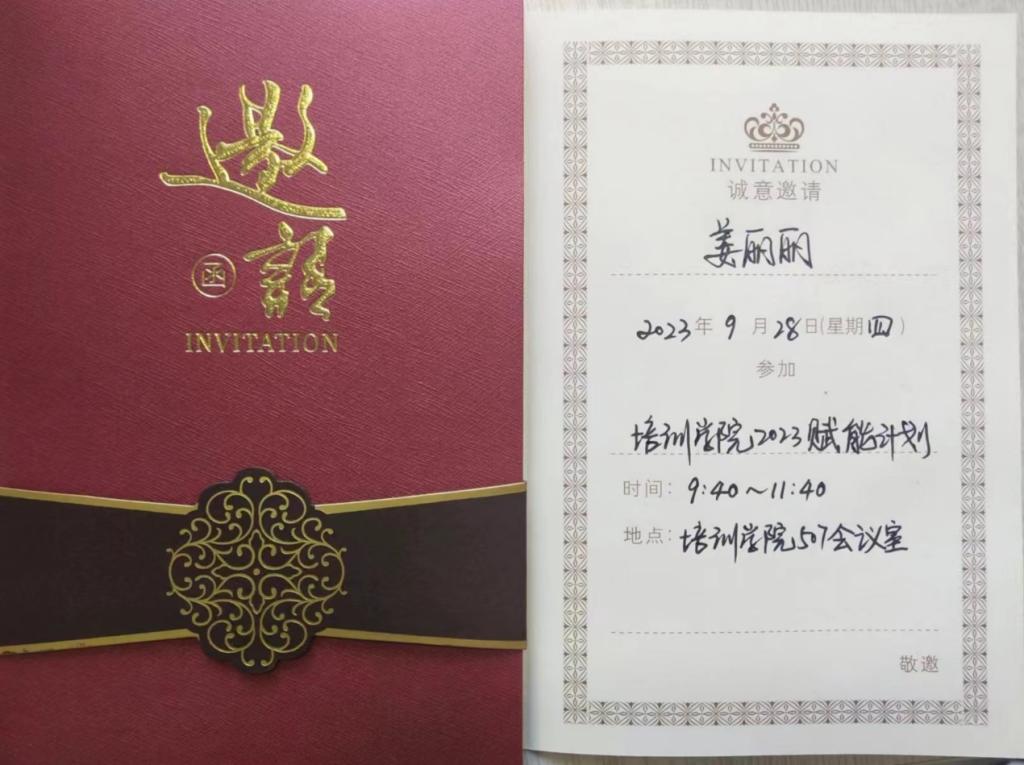 邀請
函
INVITATION
INVITATION
诚意邀请
姜丽丽
2023年9月28日(星期四)
参加
培训学院2023赋能计划
时间：9:40～11:40
地点：培训学院507会议室
敬邀